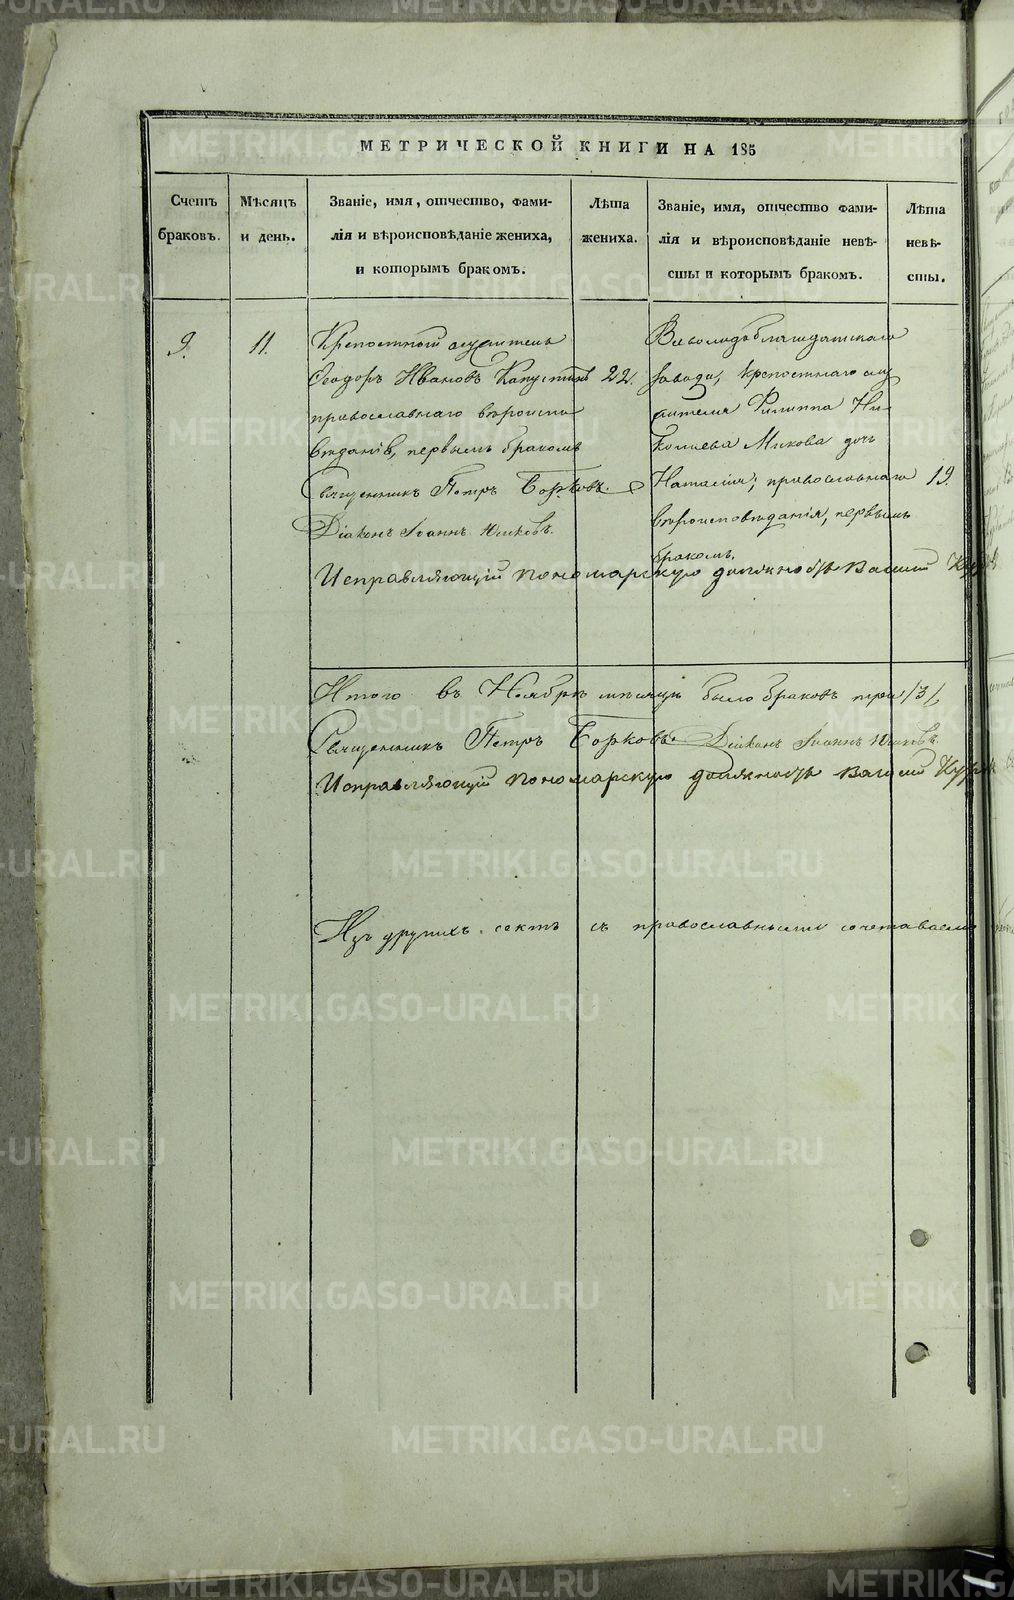 МЕТРИЧЕСКОЙ КНИГИ НА 185
Счетъ браковъ.
Мѣсяцъ и день.
Званіе, имя, отчество, фами-
лія и вѣроисповѣданіе жениха,
и которымъ бракомъ.
Лѣта
жениха.
Званіе, имя, отчество фами-
лія и вѣроисповѣданіе невѣ-
сты и которымъ бракомъ.
Лѣта
невѣ-
сты.
9.
11.
Крепостный служитель
Ѳеодоръ Ивановъ Капустинъ
православнаго вѣроиспо
вѣданія, первымъ бракомъ
Священникъ Петръ Борковъ.
Діаконъ Іоаннъ
22.
Всеволодоблагодатскаго
завода, крепостнаго слу
жителя Филиппа Ни-
колаева Микова дочь
Наталія, православнаго
вѣроисповѣданія, первымъ
бракомъ.
19.
Исправляющій пономарскую должность Василій
Итого въ Ноябрѣ мѣсяцѣ было браковъ три /3/
Священникъ Петръ Борковъ. Діаконъ Іоаннъ
Исправляющій пономарскую должность Василій
Изъ другихъ сектъ съ православными сочетаваемо
METRIKI.GASO-URAL.RU